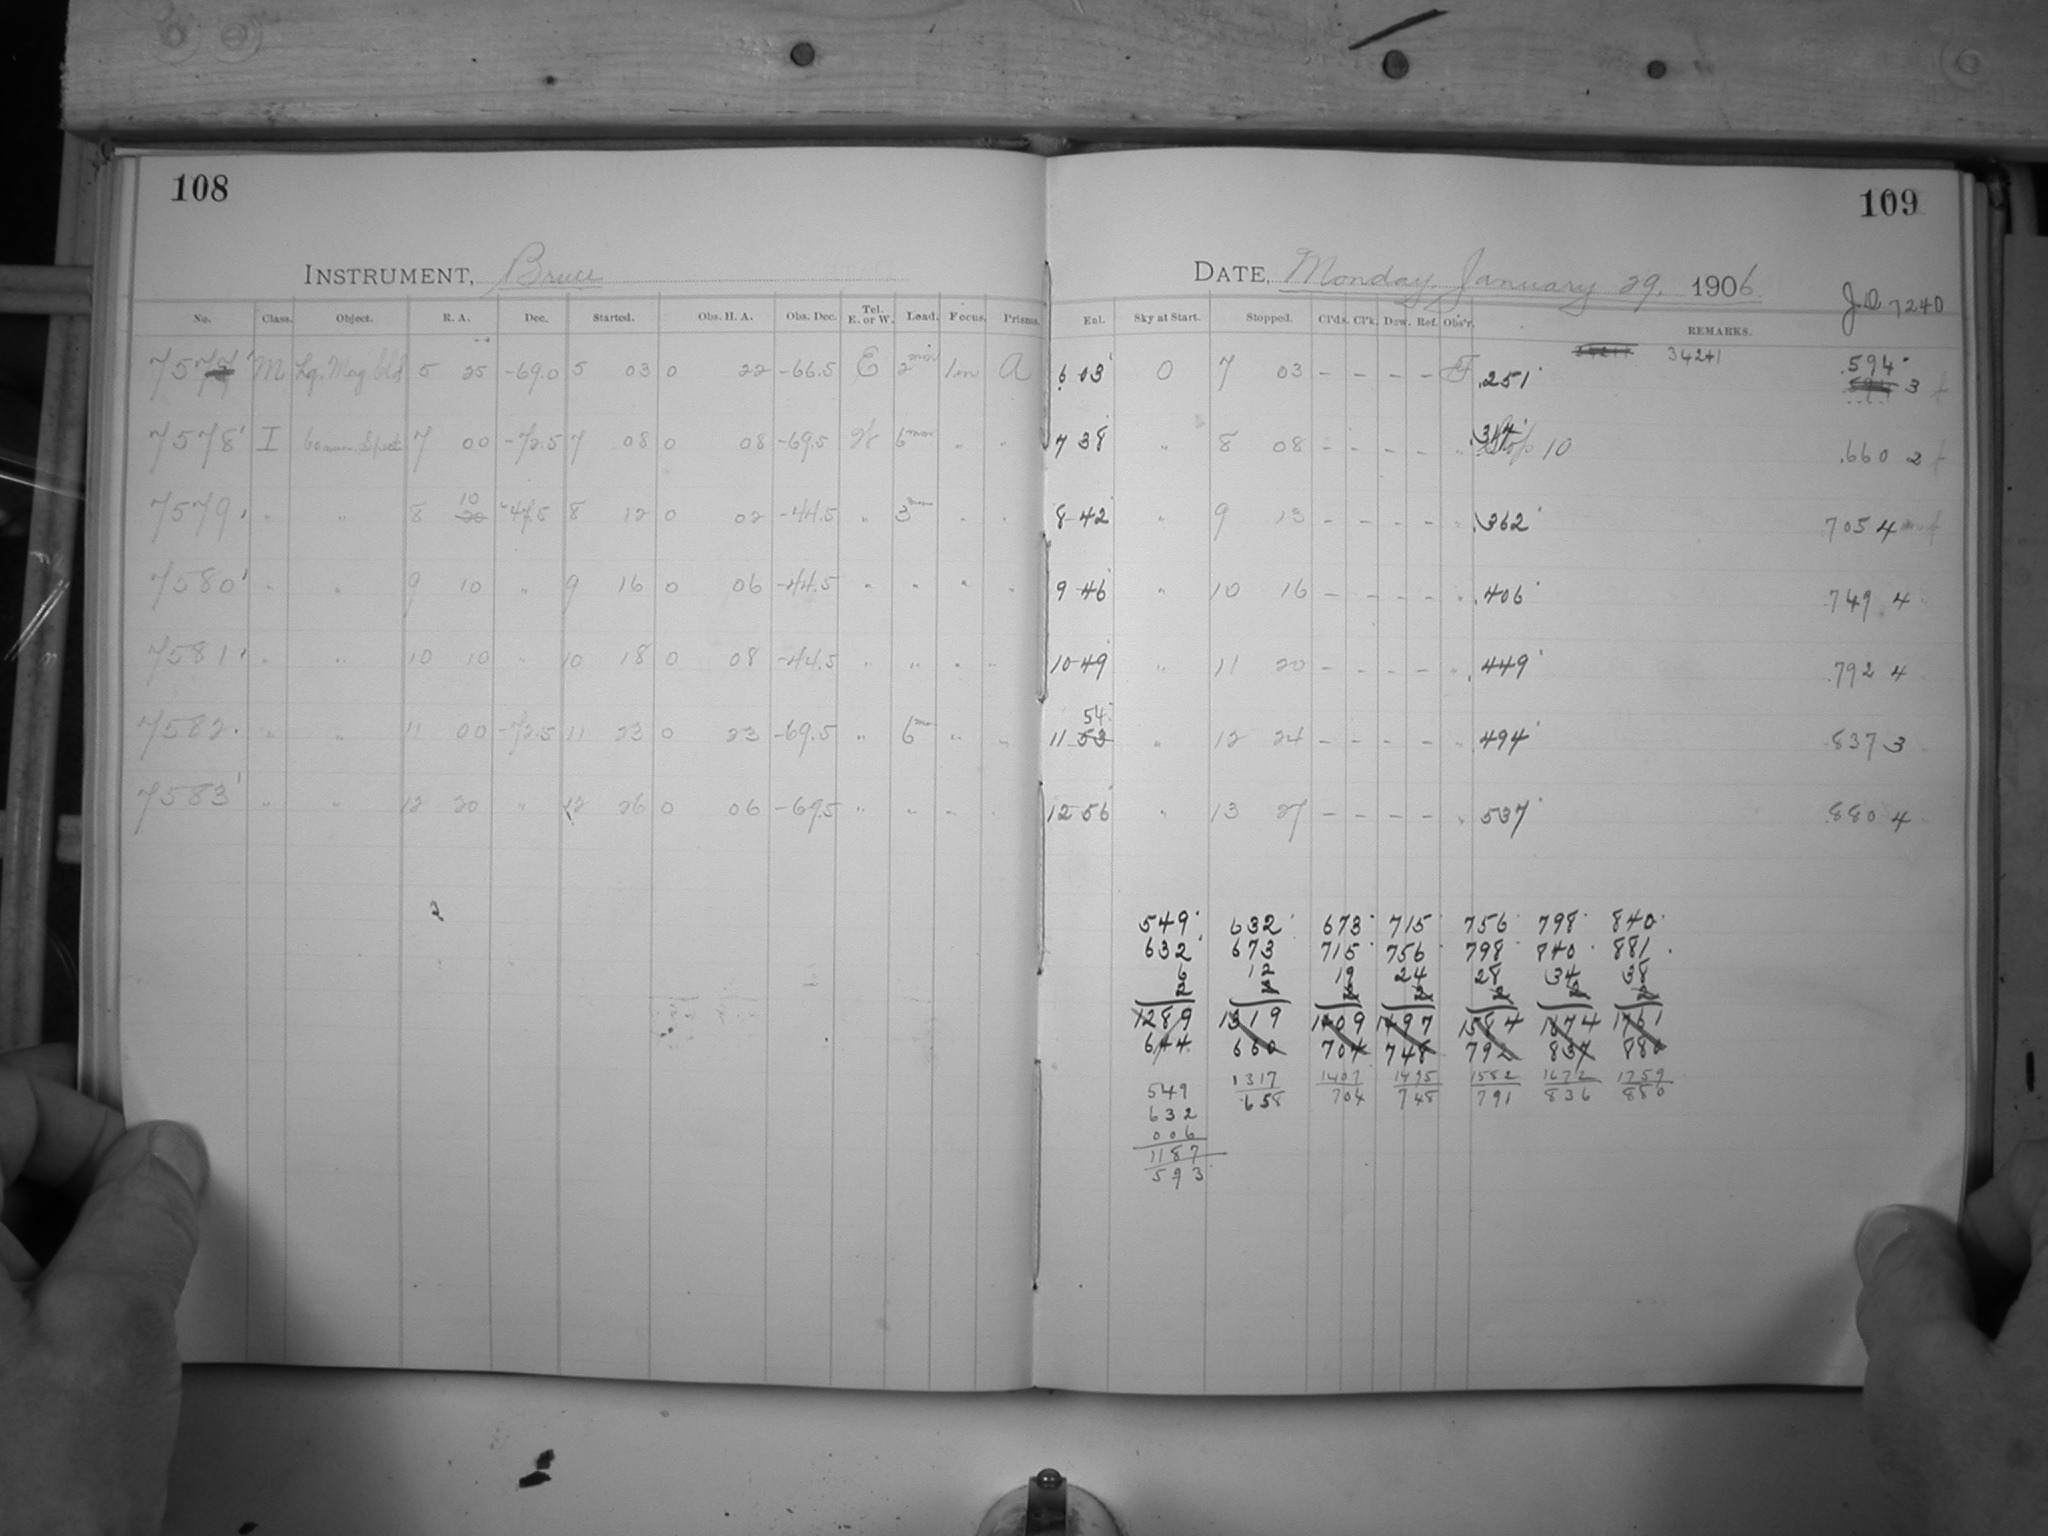 108
109
INSTRUMENT, Bruce
DATE, Monday January 29. 1906.
J.D. 7240
No. Class. Object. R. A. Dec. Started. Obs. H. A. Obs. Dec. Tel. E. or W. Load. Focus. Prisms. Enl. Sky at Start. Stopped. Cl'ds. Cl'k. Dew. Ref. Obs'r. REMARKS.
7577 M Lg. Mag. Cld 5 25 -69.0 5 03 0 22 -66.5 E 2 min 1 in A 6 03 0 7 03 - - - - .251 34241 .594 3
7578 I Comm. Spect. 7 00 -72.5 7 08 0 08 -69.5 W 6 min " " 7 38 " 8 08 - - - - " Stop 10 .660 2
7579 " " 8 10 -47.5 8 12 0 02 -44.5 " 3 min " " 8 42 " 9 13 - - - - " .362 .705 4
7580 " " 9 10 " 9 16 0 06 -44.5 " " " " 9 46 " 10 16 - - - - " .406 .749 4
7581 " " 10 10 " 10 18 0 08 -44.5 " " " " 10 49 " 11 20 - - - - " .449 .792 4
7582 " " 11 00 -72.5 11 23 0 23 -69.5 " 6 min " " 11 54 53 " 12 24 - - - - " .494 .837 3
7583 " " 12 20 " 12 26 0 06 -69.5 " " " " 12 56 " 13 27 - - - - " .537 .880 4
2
549 632 673 715 756 798 840
632 673 715 756 798 840 881
6 12 19 24 28 34 38
1289 1319 1409 1497 1584 1674 1761
644 660 704 748 792 837 880
1317 1407 1495 1582 1672 1759
549 658 704 748 791 836 880
632
006
1187
593